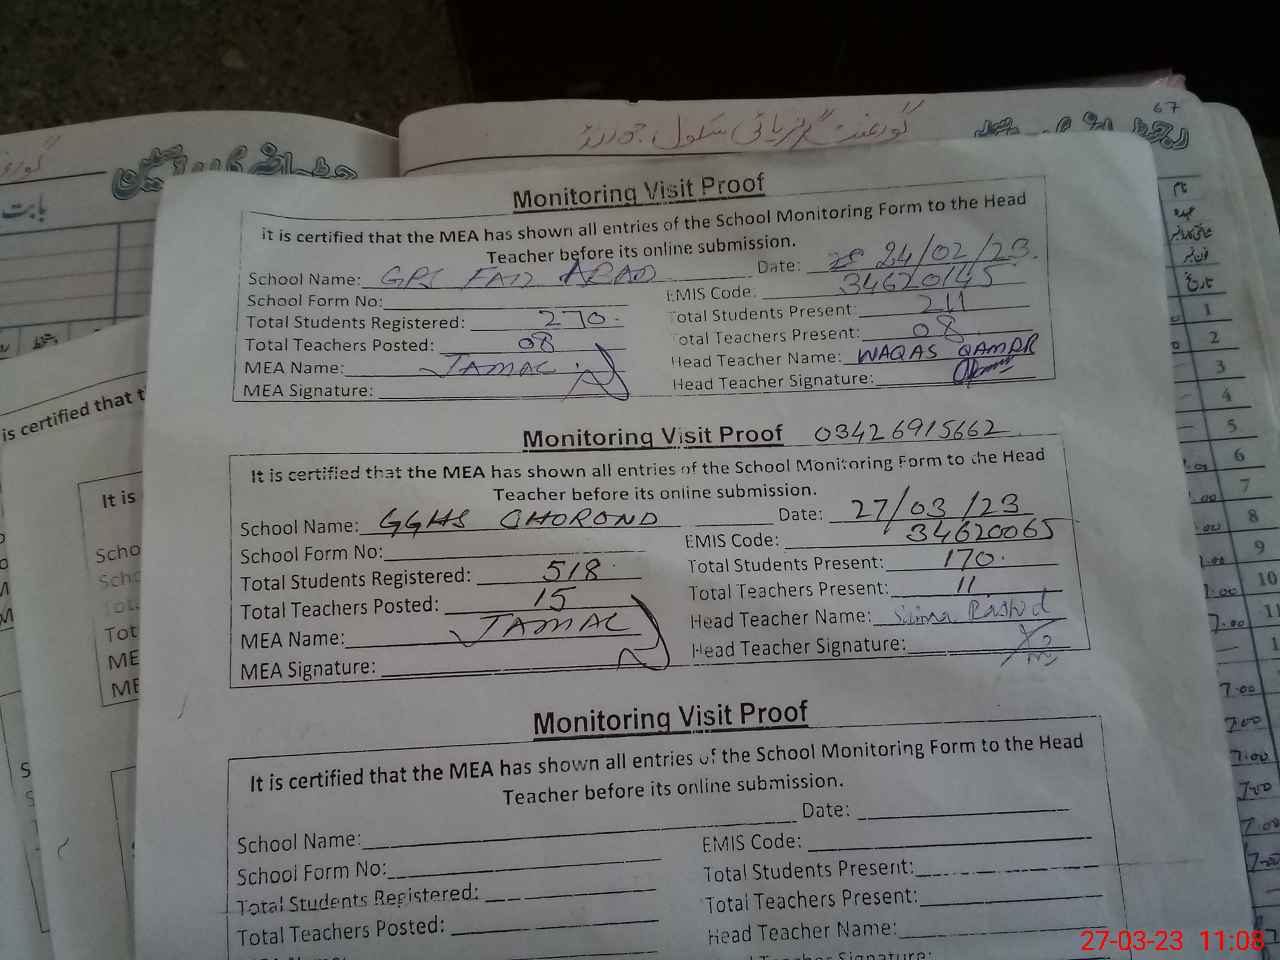 67
گورنمنٹ گرلز ہائی سکول چورنڈ
بابت
نام
عہدہ
تاریخ
Monitoring Visit Proof
it is certified that the MEA has shown all entries of the School Monitoring Form to the Head
Teacher before its online submission.
School Name: GPS FAIZ ABAD Date: 24/02/23
School Form No: EMIS Code: 34620145
Total Students Registered: 270. Total Students Present: 211
Total Teachers Posted: 08 Total Teachers Present: 08
MEA Name: JAMAL Head Teacher Name: WAQAS QAMAR
MEA Signature: Head Teacher Signature:
Monitoring Visit Proof 03426915662
It is certified that the MEA has shown all entries of the School Monitoring Form to the Head
Teacher before its online submission.
School Name: GGHS CHOROND Date: 27/03/23
School Form No: EMIS Code: 34620065
Total Students Registered: 518 Total Students Present: 170.
Total Teachers Posted: 15 Total Teachers Present: 11
MEA Name: JAMAL Head Teacher Name: Saima Rashid
MEA Signature: Head Teacher Signature:
Monitoring Visit Proof
It is certified that the MEA has shown all entries of the School Monitoring Form to the Head
Teacher before its online submission.
School Name: Date:
School Form No: EMIS Code:
Total Students Registered: Total Students Present:
Total Teachers Posted: Total Teachers Present:
Head Teacher Name:
Head Teacher Signature:
is certified that t
It is
Scho
Scho
Tota
Tot
ME
ME
1
2
3
4
5
6
7
8
9
10
11
7.00
7.00
7.00
7.00
7.00
27-03-23 11:08